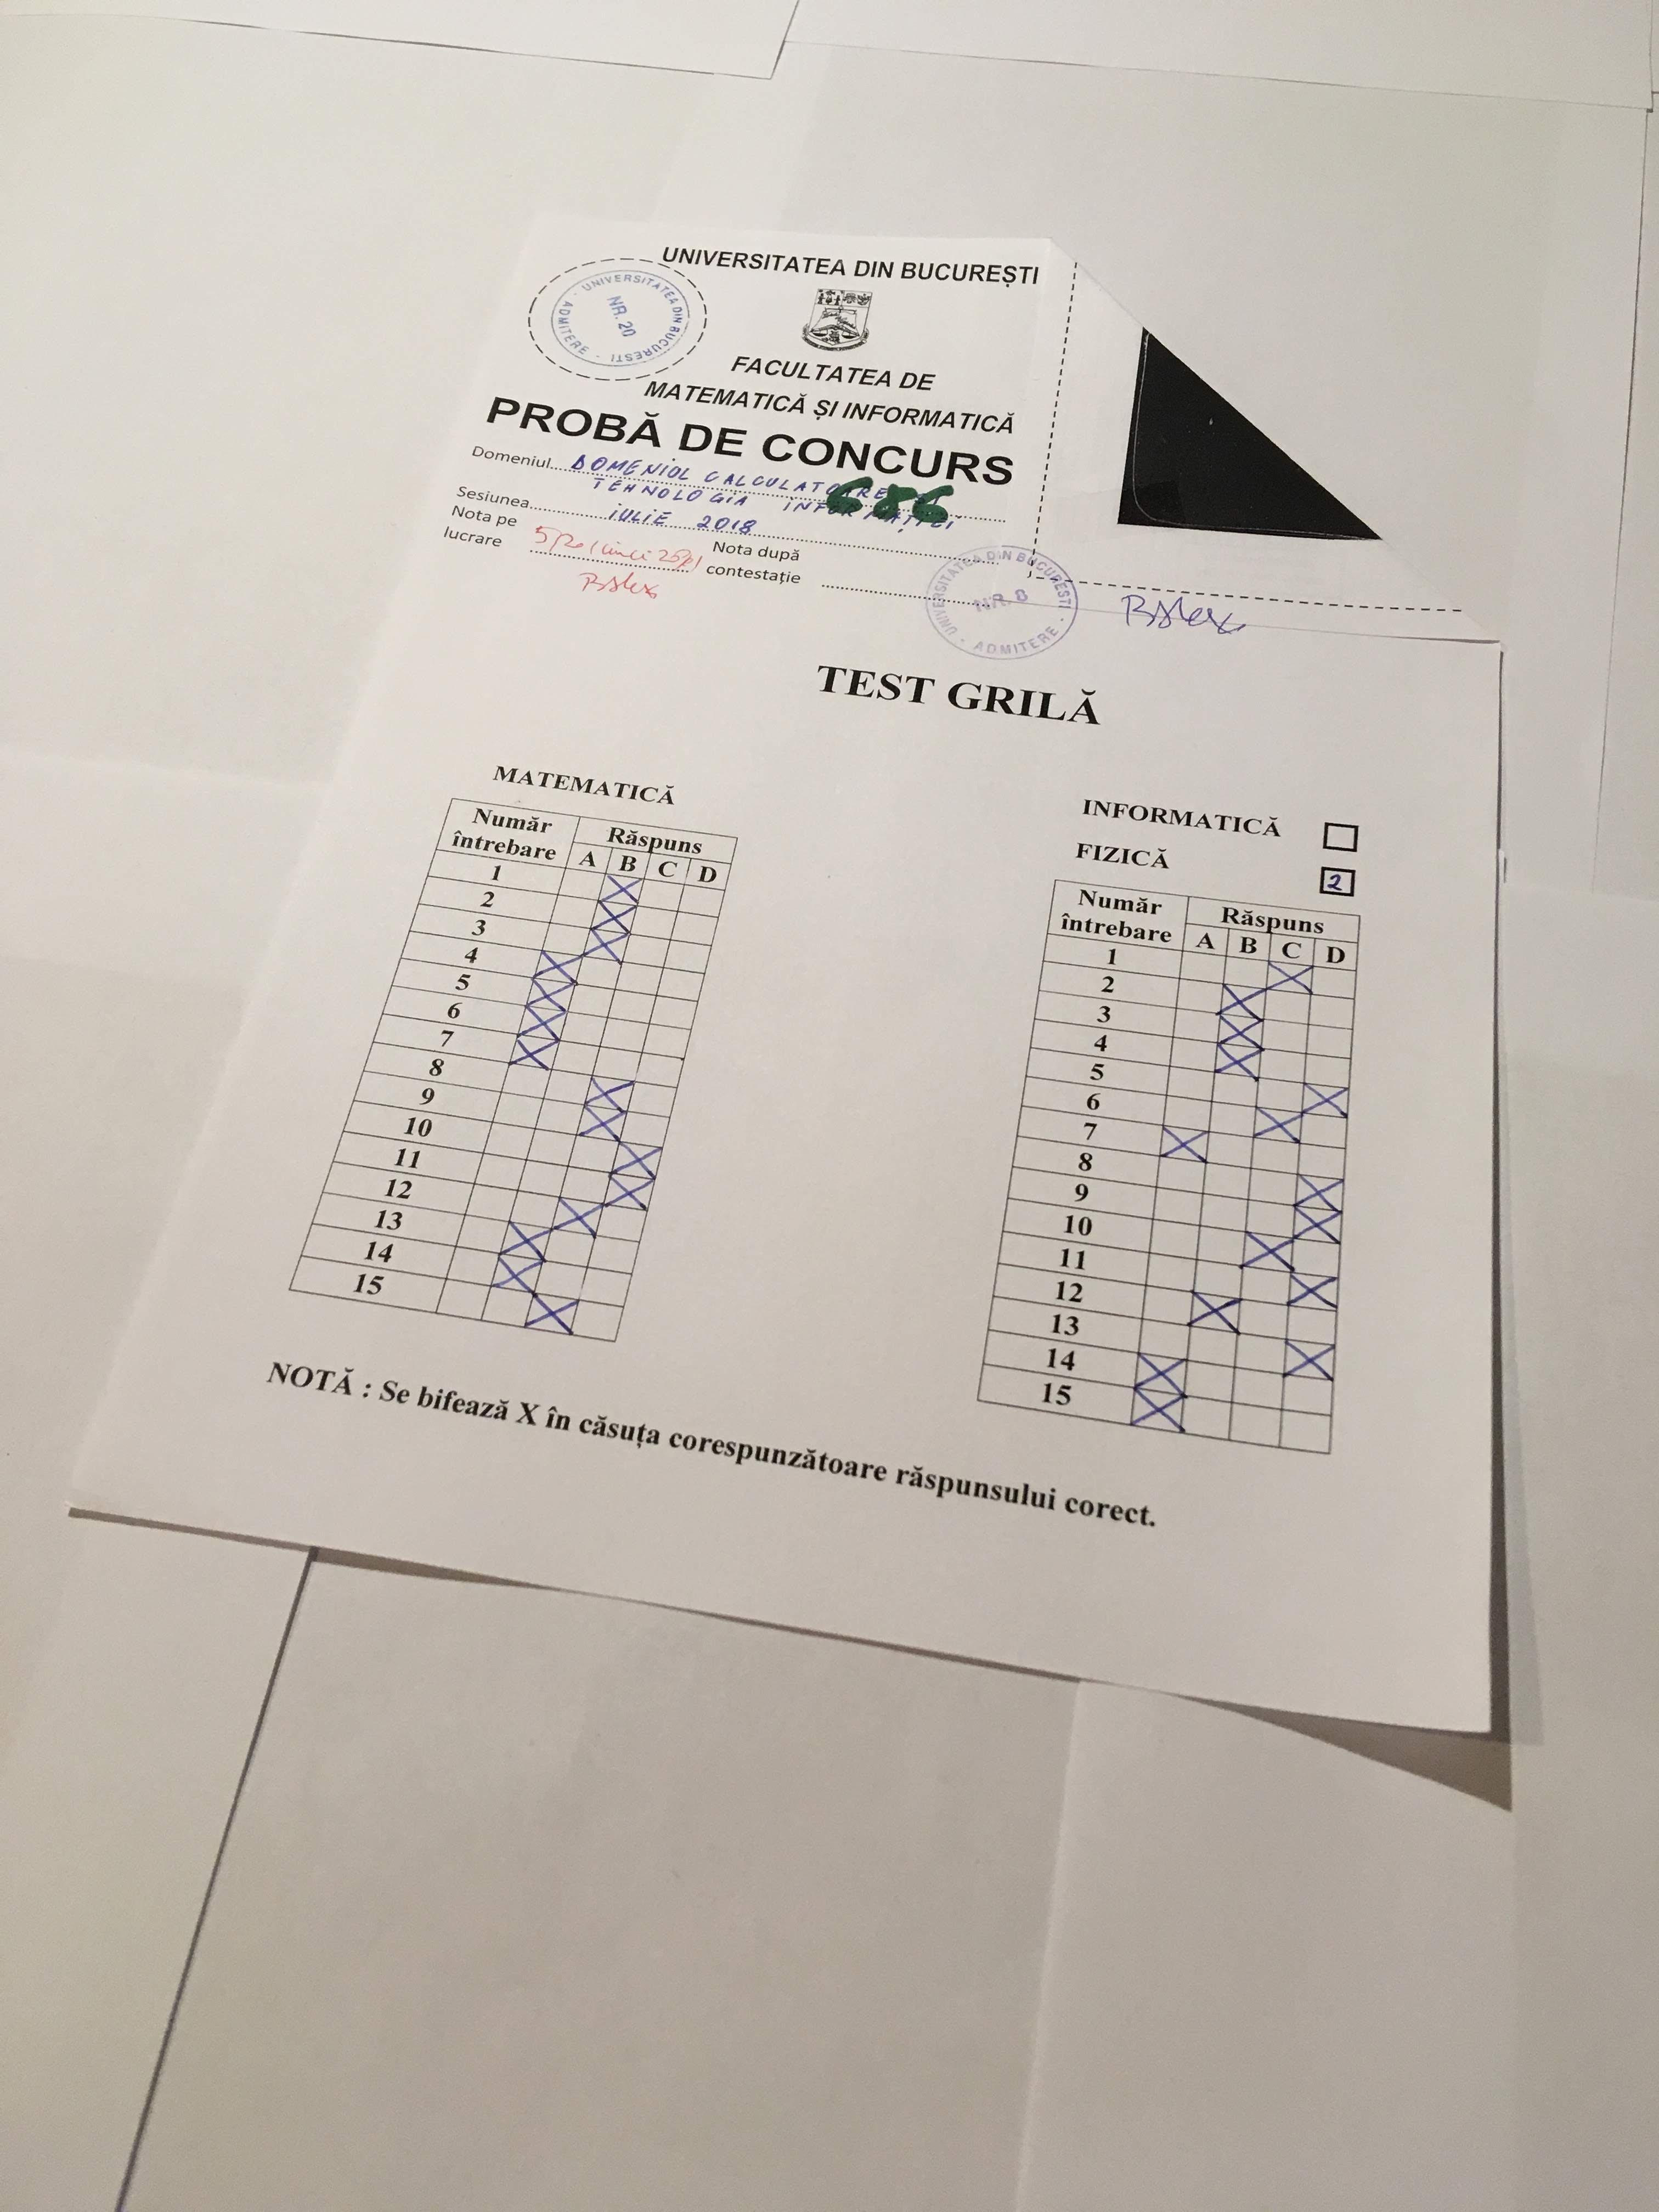 UNIVERSITATEA DIN BUCUREȘTI
UNIVERSITATEA DIN BUCURESTI · ADMITERE ·
NR. 20
FACULTATEA DE
MATEMATICĂ ȘI INFORMATICĂ
PROBĂ DE CONCURS
Domeniul DOMENIUL CALCULATOARE
TEHNOLOGIA INFORMAȚIEI
686
Sesiunea IULIE 2018
Nota pe lucrare
Nota după contestație
UNIVERSITATEA DIN BUCURESTI · ADMITERE ·
NR. 8
TEST GRILĂ
MATEMATICĂ
Număr întrebare Răspuns
A B C D
1 X
2 X
3 X
4 X
5 X
6 X
7 X
8 X
9 X
10 X
11 X
12 X
13 X
14 X
15 X
INFORMATICĂ
FIZICĂ 2
Număr întrebare Răspuns
A B C D
1 X
2 X
3 X
4 X
5 X
6 X
7 X
8 X
9 X
10 X
11 X
12 X
13 X
14 X
15 X
NOTĂ : Se bifează X în căsuța corespunzătoare răspunsului corect.